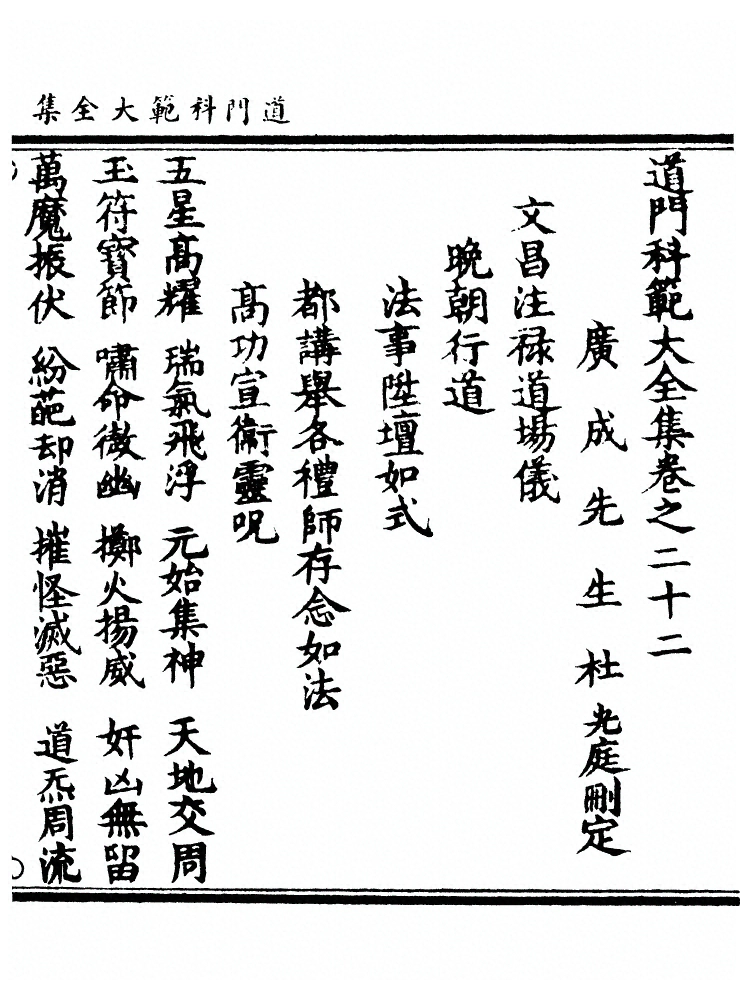 道門科範大全集
道門科範大全集卷之二十二
廣成先生杜光庭刪定
文昌注禄道場儀
晩朝行道
法事陞壇如式
都講舉各禮師存念如法
髙功宣衞靈呪
五星髙耀 瑞氣飛浮 元始集神 天地交周
玉符寳節 嘯命徵幽 擲火揚威 奸凶無留
萬魔振伏 紛葩却消 摧怪滅惡 道炁周流